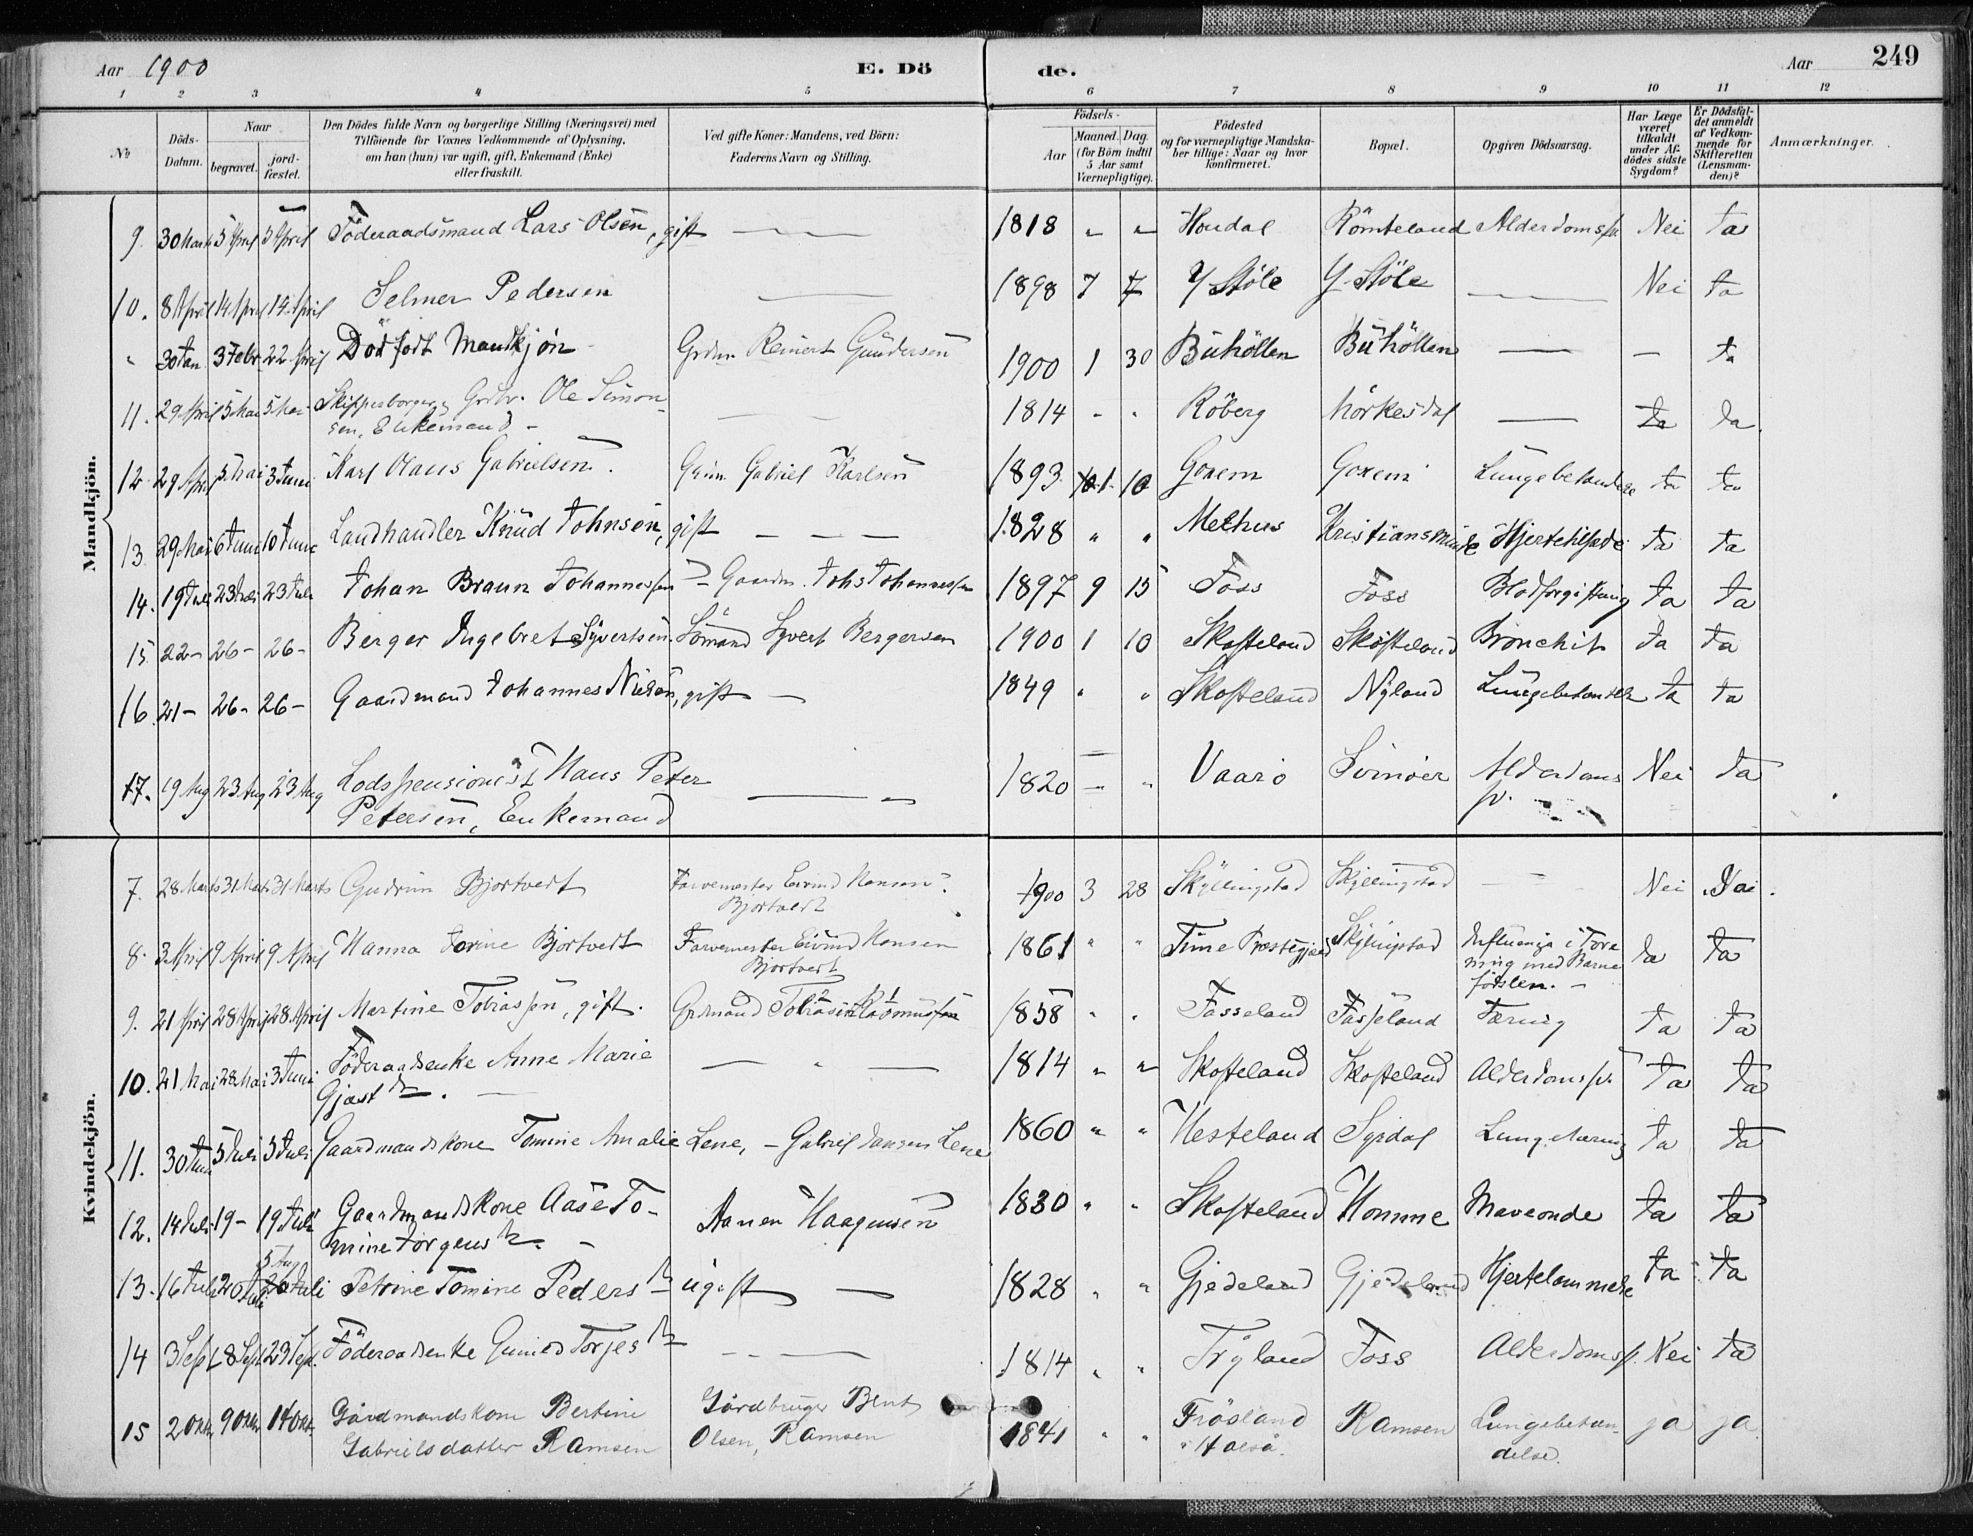 Aar 1900 E. Dö de. Aar 249
1 2 3 4 5 6 7 8 9 10 11 12
No
Döds-Datum.
Naar
begravet.
jord-fæstet.
Den Dödes fulde Navn og borgerlige Stilling (Næringsvei) med
Tilföiende for Voxnes Vedkommende af Oplysning,
om han (hun) var ugift, gift, Enkemand (Enke)
eller fraskilt.
Ved gifte Koner: Mandens, ved Börn:
Faderens Navn og Stilling.
Födsels-
Aar
Maaned. Dag.
(for Börn indtil
5 Aar samt
Værnepligtige).
Födested
og for værnepligtige Mandska-
ber tillige: Naar og hvor
konfirmeret.
Bopæl.
Opgiven Dödsaarsag.
Har Læge
været
tilkaldt
under Af-
dödes sidste
Sygdom?
Er Dödsfal-
det anmeldt
af Vedkom-
mende for
Skifteretten
(Lensman-
den)?
Anmærkninger.
Mandkjön.
9. 30 Marts 5 April 5 April Föderaadsmand Lars Olsen, gift — — 1818 " " Houdal Römteland Alderdomssv. Nei Ja
10. 8 April 14 April 14 April Selmer Pedersen — 1898 7 7 Y. Støle Y. Støle — Nei Ja
" 30 Jan 3 Febr 22 April Dödfödt Mandkjön Grdm. Reinert Gundersen 1900 1 30 Buhöllen Buhöllen — — Ja
11. 29 April 5 Mai 5 Mai Skipperborger, Grdbr. Ole Simon-
sen, Enkemand — 1814 " " Röberg Mörkesdal — Ja Ja
12 29 April 5 Mai 3 Juni Karl Olaus Gabrielsen. Gabriel Karlsen 1893 1 10 Goxem Goxem Lungebetændelse Ja Ja
13 29 Mai 6 Juni 10 Juni Landhandler Knud Johnsen, gift — — — 1828 " " Melhus Kristiansminde Hjertetilfælde Ja Ja
14. 19 Juli 23 Juli 23 Juli Johan Braun Johannessen Gaardm. Johs Johannessen 1897 9 15 Foss Foss Blodforgiftning Ja Ja
15 22- 26- 26- Berger Ingebret Syvertsen Sömand Syvert Bergersen 1900 1 10 Skofteland Skofteland Bronchit Ja Ja
16 21- 26- 26- Gaardmand Johannes Nilsen, gift — 1849 " " Skofteland Nyland Lungebetændelse Ja Ja
17. 19 Aug 23 Aug 23 Aug Lodspensionist Hans Peter
Petersen, Enkemand — 1820 " " Vaarö Svinöer Alderdoms
sv. Nei Ja
Kvindekjön.
7. 28 Marts 31 Marts 31 Marts Gudrun Bjortvedt Farvemester Eivind Hansen
Bjortvedt 1900 3 28 Skjellingstad Skjellingstad — Nei Nei.
8. 3 April 9 April 9 April Hanna Jorine Bjortvedt Farvemester Eivind Hansen
Bjortvedt 1861 " " Time Præstegjeld Skjellingstad Influenza i Fore
ning med Barne
födslen. Ja Ja
9. 21 April 28 April 28 April Martine Tobiassen, gift. Grdmand Tobias Rasmussen 1858 " " Fasseland Fasseland Tæring Ja Ja
10. 21 Mai 28 Mai 3 Juni Föderaadsenke Anne Marie
Gjastdr. — " — 1814 " " Skofteland Skofteland Alderdomssv. Ja Ja
11. 30 Juni 5 Juli 5 Juli Gaardmandskone Tomine Amalie Lene, - Gabriel Jansen Lene 1860 " " Hesteland Syrdal Lungetæring Ja Ja
12. 14 Juli 19- 19 Juli Gaardmandskone Aase To-
mine Jörgensdr. — Aanen Haagensen 1830 " " Skofteland Homme Maveonde Ja Ja
5 Aug
13. 16 Juli 20 Juli 20 Juli Petrine Tomine Pedersdr ugift — 1828 " " Gjedeland Gjedeland Hjertelammelse Ja Ja
14 3 Sept 8 Sept 23 Sept. Föderaadsenke Torjesdr — 1814 " " Tryland Foss Alderdomssv. Nei Ja
15 2 Okt 9 Okt 14 Okt Gårdmandskone Bertine
Gabrielsdatter Ramsen Gårdbruger Bent
Olsen, Ramsen 1841 " " Frösland
i Halså. Ramsen Lungebetæn-
delse. ja ja